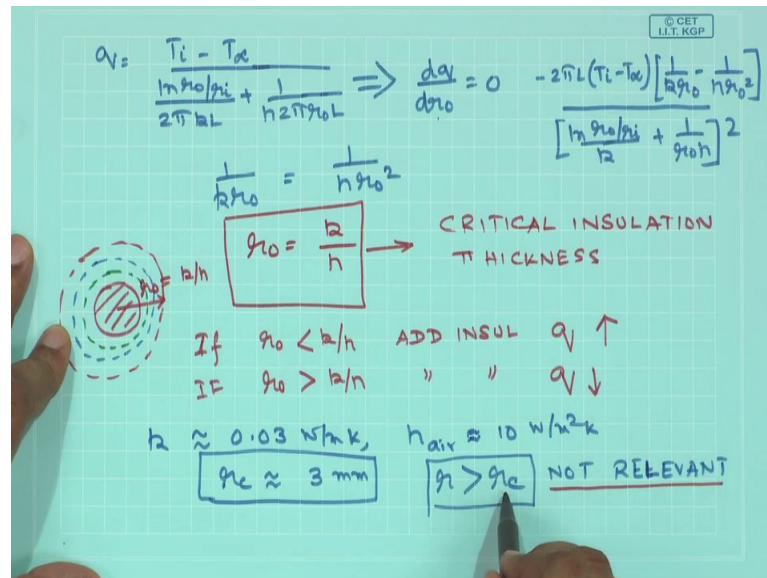 © CET
I.I.T. KGP
q = (Ti - T∝) / (ln ro/ri / 2πkL + 1 / h2πroL) ⇒ dq/dro = 0 -2πL(Ti-T∝)[1/kro - 1/hro²] / [ln ro/ri / k + 1/roh]²
1/kro = 1/hro²
ro = k/h → CRITICAL INSULATION
THICKNESS
ro = k/h
If ro < k/h ADD INSUL q ↑
IF ro > k/h " " q ↓
k ≈ 0.03 W/mK, hair ≈ 10 W/m²K
rc ≈ 3 mm r > rc NOT RELEVANT